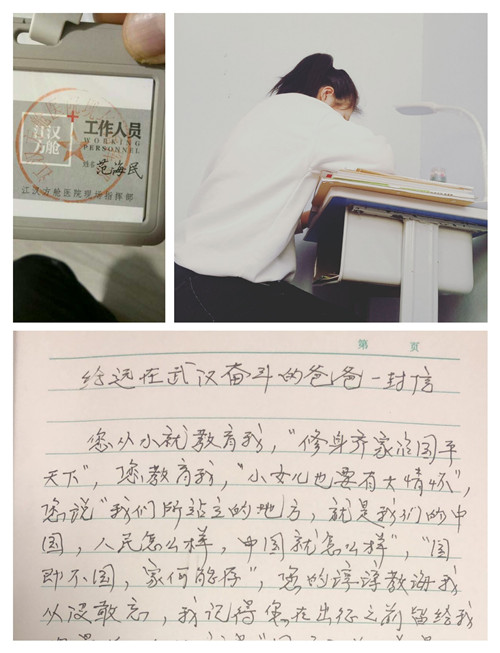 江汉
方舱
工作人员
WORKING
PERSONNEL
姓名 范海民
江汉方舱医院现场指挥部
第 页
给远在武汉奋斗的爸爸一封信
您从小就教育我，“修身齐家治国平
天下”，您教育我，“小女儿也要有大情怀”，
您说“我们所站立的地方，就是我们的中
国，人民怎么样，中国就怎么样”，“国
即不国，家何能存”，您的谆谆教诲我
从没敢忘，我记得您在出征之前留给我